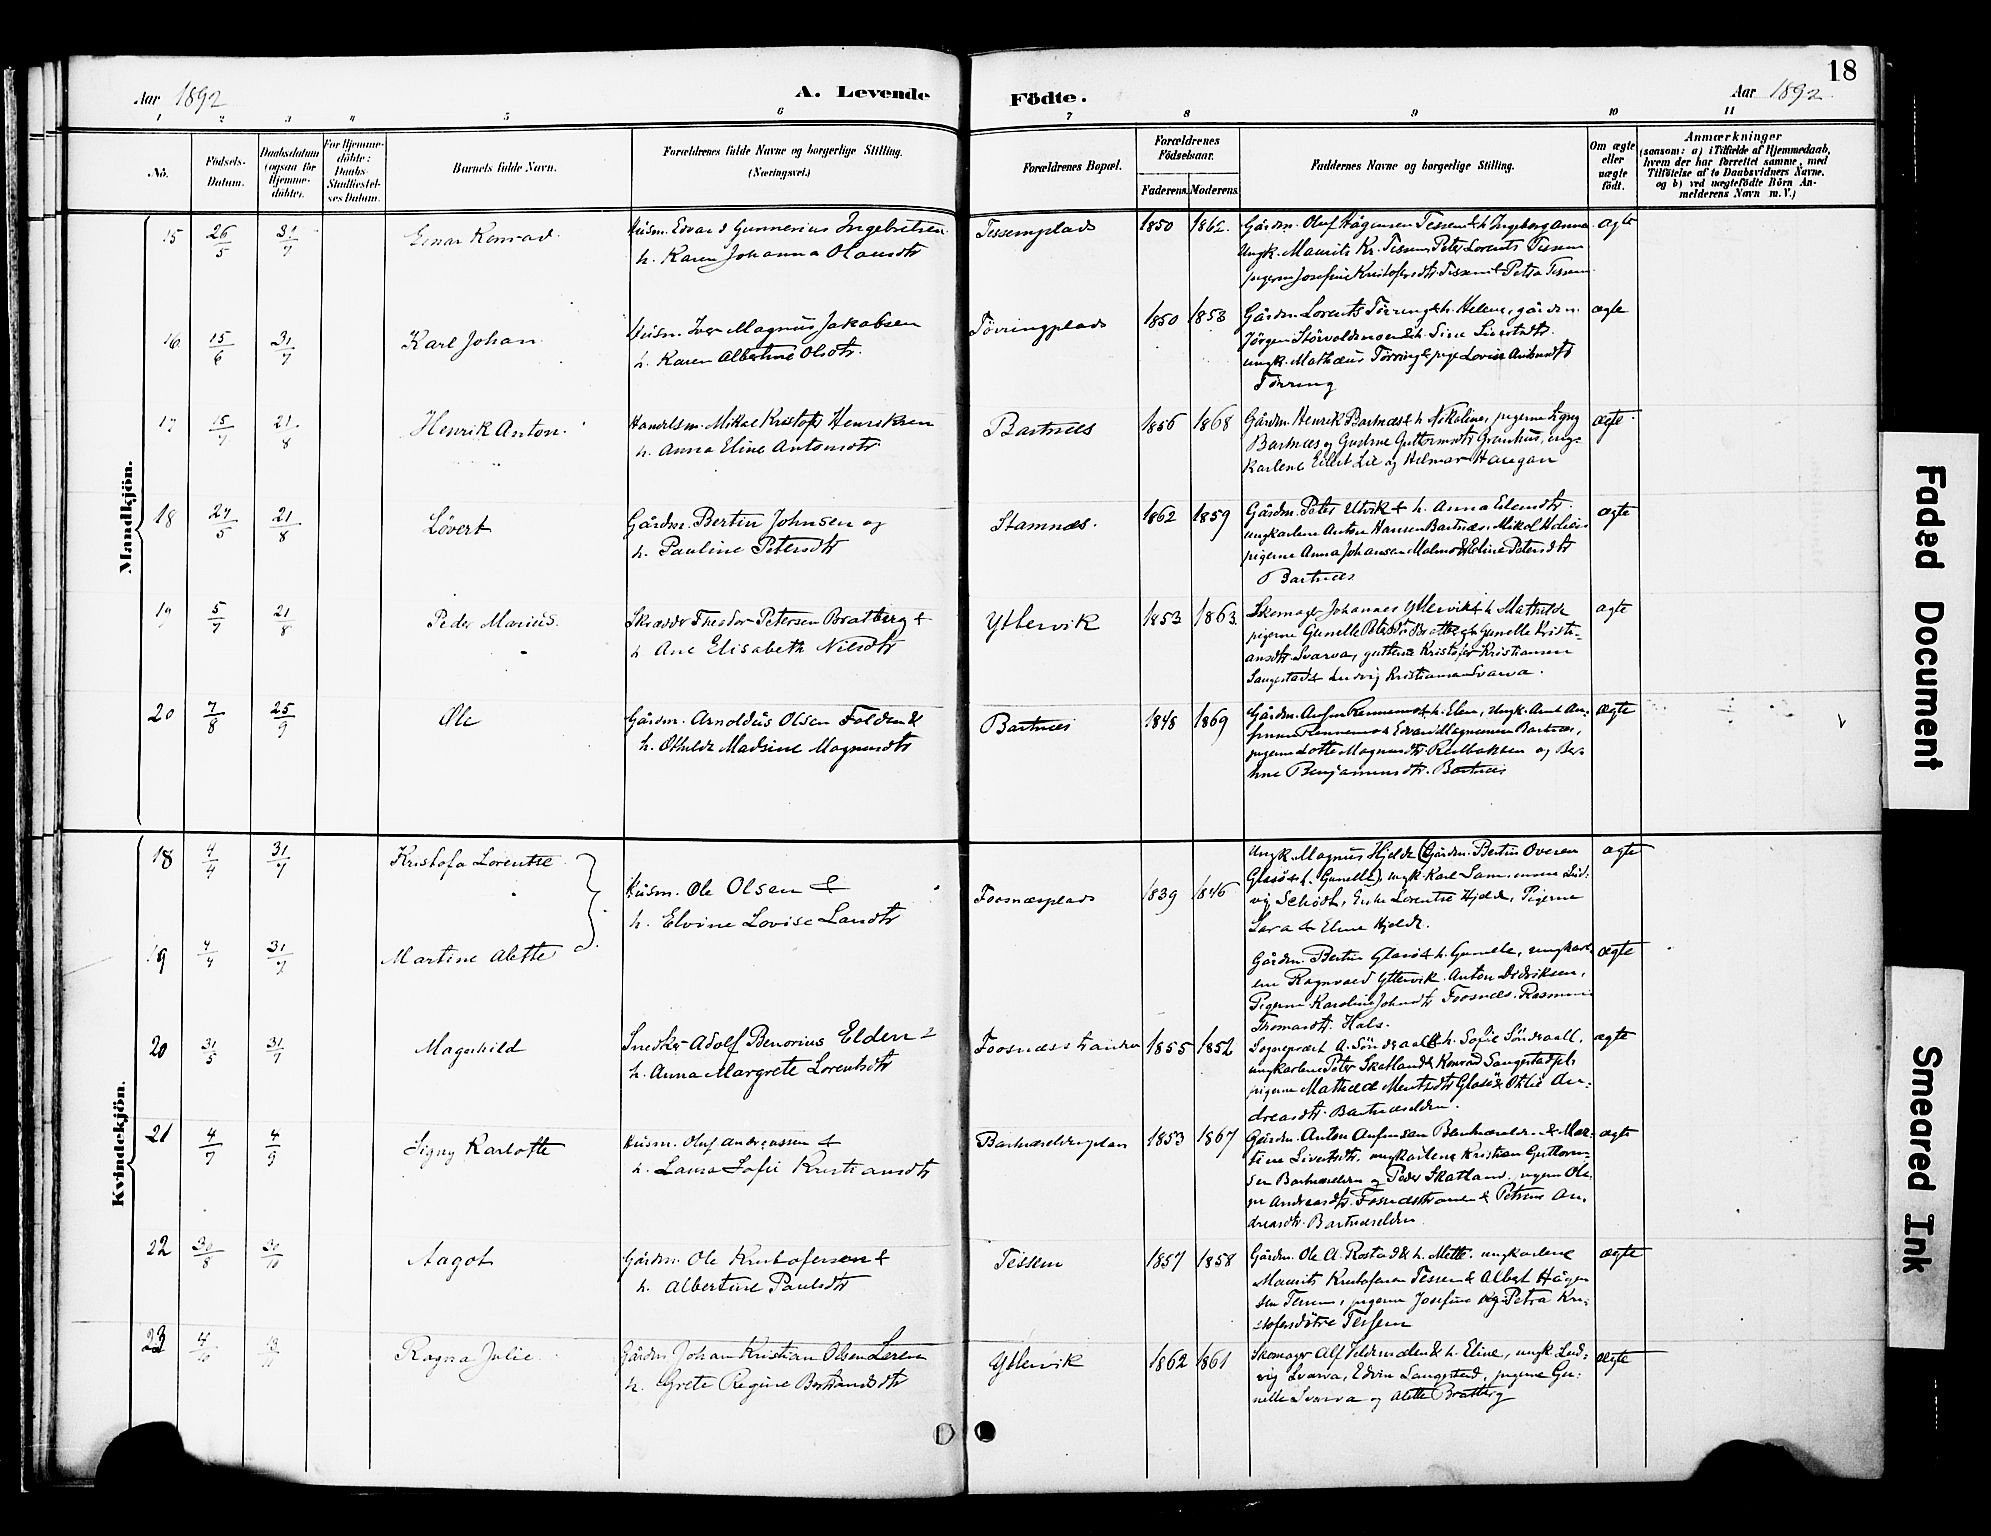 18
Aar 1892
A. Levende
Födte.
Aar 1892
1 2 3 4 5 6 7 8 9 10 11
No.
Födsels-Datum.
Daabsdatum (ogsaa for Hjemme-döbte).
For Hjemme-döbte: Daabs-Stadfæstel-ses Datum.
Barnets fulde Navn.
Forældrenes fulde Navne og borgerlige Stilling. (Næringsvei.)
Forældrenes Bopæl.
Forældrenes Födselsaar.
Faderens. Moderens.
Faddernes Navne og borgerlige Stilling.
Om ægte eller uægte födt.
Anmærkninger
(saasom: a) i Tilfælde af Hjemmedaab, hvem der har forrettet samme, med Tilföielse af to Daabsvidners Navne, og b) ved uægtefödte Börn An-melderens Navn m. V.)
Mandkjön.
15 26/5 31/7 Einar Konrad. Husm. Edvard Gunnerius Ingebretsen
h. Karen Johanna Olausdtr
Tessemplads 1850 1862. Gårdm. Oluf Hågensen Tessem & h. Ingeborg Anna
Ungk. Maurits Kr. Tessem, Peter Lorents Tessem
pigerne Josefine Kristofersdtr Tessem & Petra Tessem
ægte
16 15/6 31/7 Karl Johan Husm. Iver Magnus Jakobsen
h. Karen Albertine Olsdtr.
Törringplads 1850 1853 Gårdm. Lorents Törring & h. Helene, gårdm.
Jörgen Störvoldmoen & h. Sine Sivertsdtr.
ungk. Mathæus Törring & pige Lovise
Törring
ægte
17 15/7 21/8 Henrik Anton. Handelsm. Mikal Kristofer Henriksen
h. Anna Eline Antonsdtr
Bartnes 1856 1868 Gårdm. Henrik Bartnæs & h. Nikoline, pigerne Signy
Bartnæs og Gudrun Guttormsdtr Granhus, ung-
karlene Eilert Lie og Helmer Haugan
ægte
18 27/5 21/8 Lövert Gårdm. Bertin Johnsen og
h. Pauline Petersdtr
Stamnæs. 1862 1859 Gårdm. Peter Utvik & h. Anna
ungkarlene Anton Hansen Bartnæs, Mikal
pigerne Anna Johansen Malmo & Eline Petersdtr
Bartnæs
ægte
19 5/7 21/8 Peder Marius. Skrædder Theodor Petersen Bratberg &
h Ane Elisabeth Nilsdtr
Yttervik 1853 1863. Skomager Johannes Yttervik & h Mathilde
pigerne Gunelle Petersdtr Bratberg & Gunelle Kristi-
ansdtr Svarva, guttene Kristofer Kristiansen
Langestad & Ludvig Kristiansen Svarva.
ægte
20 7/8 25/9 Ole Gårdm. Arnoldus Olsen Folden &
h. Othilde Madsine Magnusdtr
Bartnes 1848 1869 Gårdm. Anfin Rennemo & h. Elen, Ungk. Arnt An-
finnsen Rennemo & Edvard Magnussen Bartnæs,
pigerne Lotte Magnusdtr. og Ber-
Benjaminsdtr. Bartnæs
ægte
Kvindekjön.
18 4/4 31/7 Kristofa Lorentse
Husm. Ole Olsen &
h. Elvine Lovise Larsdtr
Foosnæsplads 1839 1846 Ungk. Magnus Hjelde (Gårdm. Bertin Overen
Glasö & h. Gunelle), ungk. Karl Lud-
vig Schödt, Enke Lorentse Hjelde, Pigerne
Sara & Eline Hjelde.
ægte
19 4/4 31/7 Martine Alette
Gårdm. Bertin Glasö & h. Gunelle, ungkarl-
ene Ragnvald Yttervik, Anton Didriksen,
Pigerne Karoline Johnsdtr Foosnæs, Rasmine
Thomasdtr. Hals.
ægte
20 31/5 31/7 Magnhild Snedker Adolf Benonius Elden &
h. Anna Margrete Lorentsdtr
Foosnæsstranden 1855 1852 Sogneprest A. Söndraal & h. Sofie Söndraal,
ungkarlene Peter Skatland & Konrad Langestad
pigerne Mathilde Mentsdtr Glasö & Otilie An-
dreasdtr. Bartnæselden.
ægte
21 4/7 4/9 Signy Karlotte Husm. Oluf Andreassen &
h. Laura Sofie Kristiansdtr
Bartnæseldenplads 1853 1867 Gårdm. Anton Anfinsen Bartnæselden & Mar-
tine Sivertsdtr, ungkarlene Kristian Guttorm-
sen Bartnæselden og Peder Skatland, pigerne
Andreasdtr. Foosnæsstranden & Petrine An-
dreasdtr. Bartnæselden.
ægte
22 30/8 30/10 Aagot Gårdm. Ole Kristofersen &
h. Albertine Paulsdtr
Tessem 1857 1858 Gårdm. Ole A. Rostad & h. Mette, ungkarlene
Maurits Kristofersen Tessem & Albert Hågen-
sen Tessem, pigerne Josefine og Petra Kri-
stofersdötre Tessem
ægte
23 4/10 13/11 Ragna Julie. Gårdm Johan Kristian Olsen Leren
h. Grete Regine Bertransdtr
Yttervik 1862 1861 Skomager Alf Veldemalen & h. Eline, ungk. Lud-
vig Svarva, Edvin Langestad, pigerne Gu-
nelle Svarva og Alette Bratberg
ægte
Faded Document
Smeared Ink